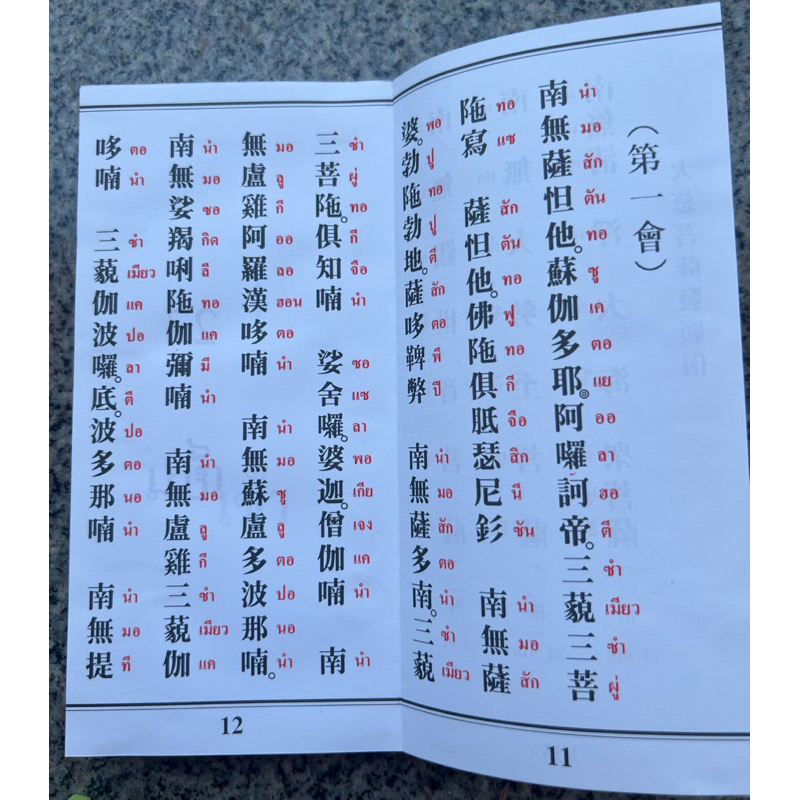 （第一會）
南無薩怛他。蘇伽多耶◎阿囉訶帝。三藐三菩
นำ มอ สัก ตัน ทอ ซู เค ตอ แย ออ ลา ฮอ ตี ซำ เมียว ซำ ผู่
陁寫 薩怛他。佛陁俱胝瑟尼釤 南無薩
ทอ แซ สัก ตัน ทอ ฟู ทอ กี จือ สิก นี ซัน นำ มอ สัก
婆。勃陁勃地。薩哆鞞弊 南無薩多南。三藐
พอ ปู ทอ ปู ตี สัก ตอ พี ปี นำ มอ สัก ตอ นำ ซำ เมียว
11
三菩陁。俱知喃 娑舍囉。婆迦。僧伽喃 南
ซำ ผู่ ทอ กี จือ นำ ซอ แซ ลา พอ เกีย เจง แค นำ นำ
無盧雞阿羅漢哆喃 南無蘇盧多波那喃。
มอ ลู กี ออ ลอ ฮอน ตอ นำ นำ มอ ซู ลู ตอ ปอ นอ นำ
南無娑羯唎陁伽彌喃 南無盧雞三藐伽
นำ มอ ซอ กิด ลี ทอ แค มี นำ นำ มอ ลู กี ซำ เมียว แค
哆喃 三藐伽波囉。底。波多那喃 南無提
ตอ นำ ซำ เมียว แค ปอ ลา ตี ปอ ตอ นอ นำ นำ มอ ที
12